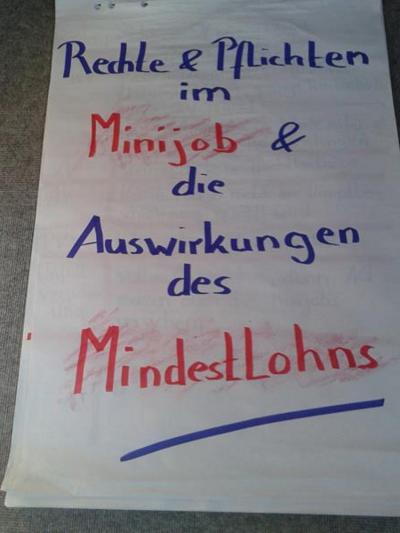 Rechte & Pflichten
im
Minijob &
die
Auswirkungen
des
MindestLohns